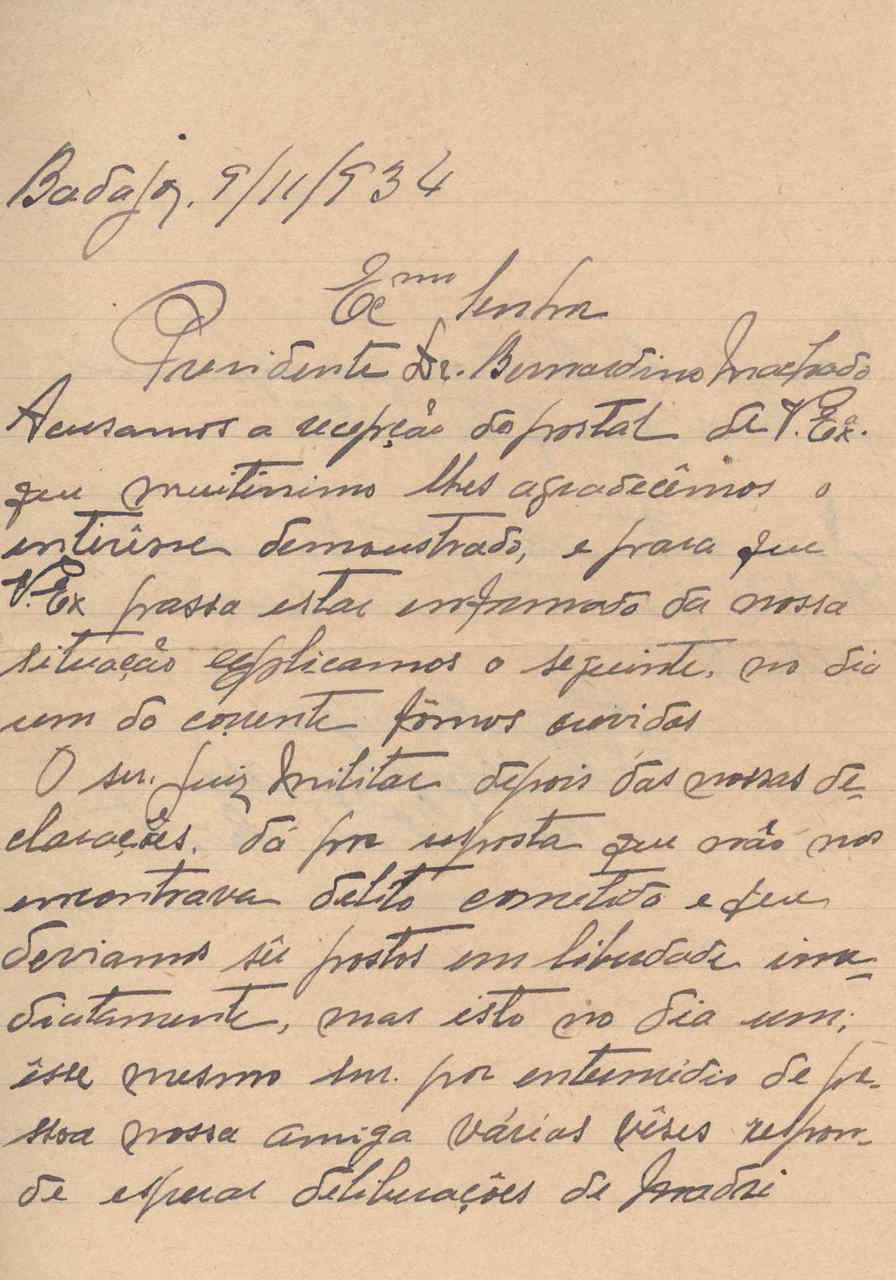 Badajoz, 9/11/934
Exmo Senhor
Presidente Dr. Bernardino Machado
Acusamos a recepção do postal de V. Exª.
que muitissimo lhes agradecêmos o
interêsse demonstrado, e para que
V. Ex possa estar informado da nossa
situação explicamos o seguinte, no dia
um do corrente fômos ouvidos
O snr. Juiz Militar depois das nossas de-
clarações, dá por resposta que não nos
encontrava delito cometido e que
deviamos sêr postos em liberdade ime-
diatamente, mas isto no dia um;
êsse mesmo snr. por entermédio de pe-
ssoa nossa amiga várias vêses respon-
de esperar deliberações de Madri